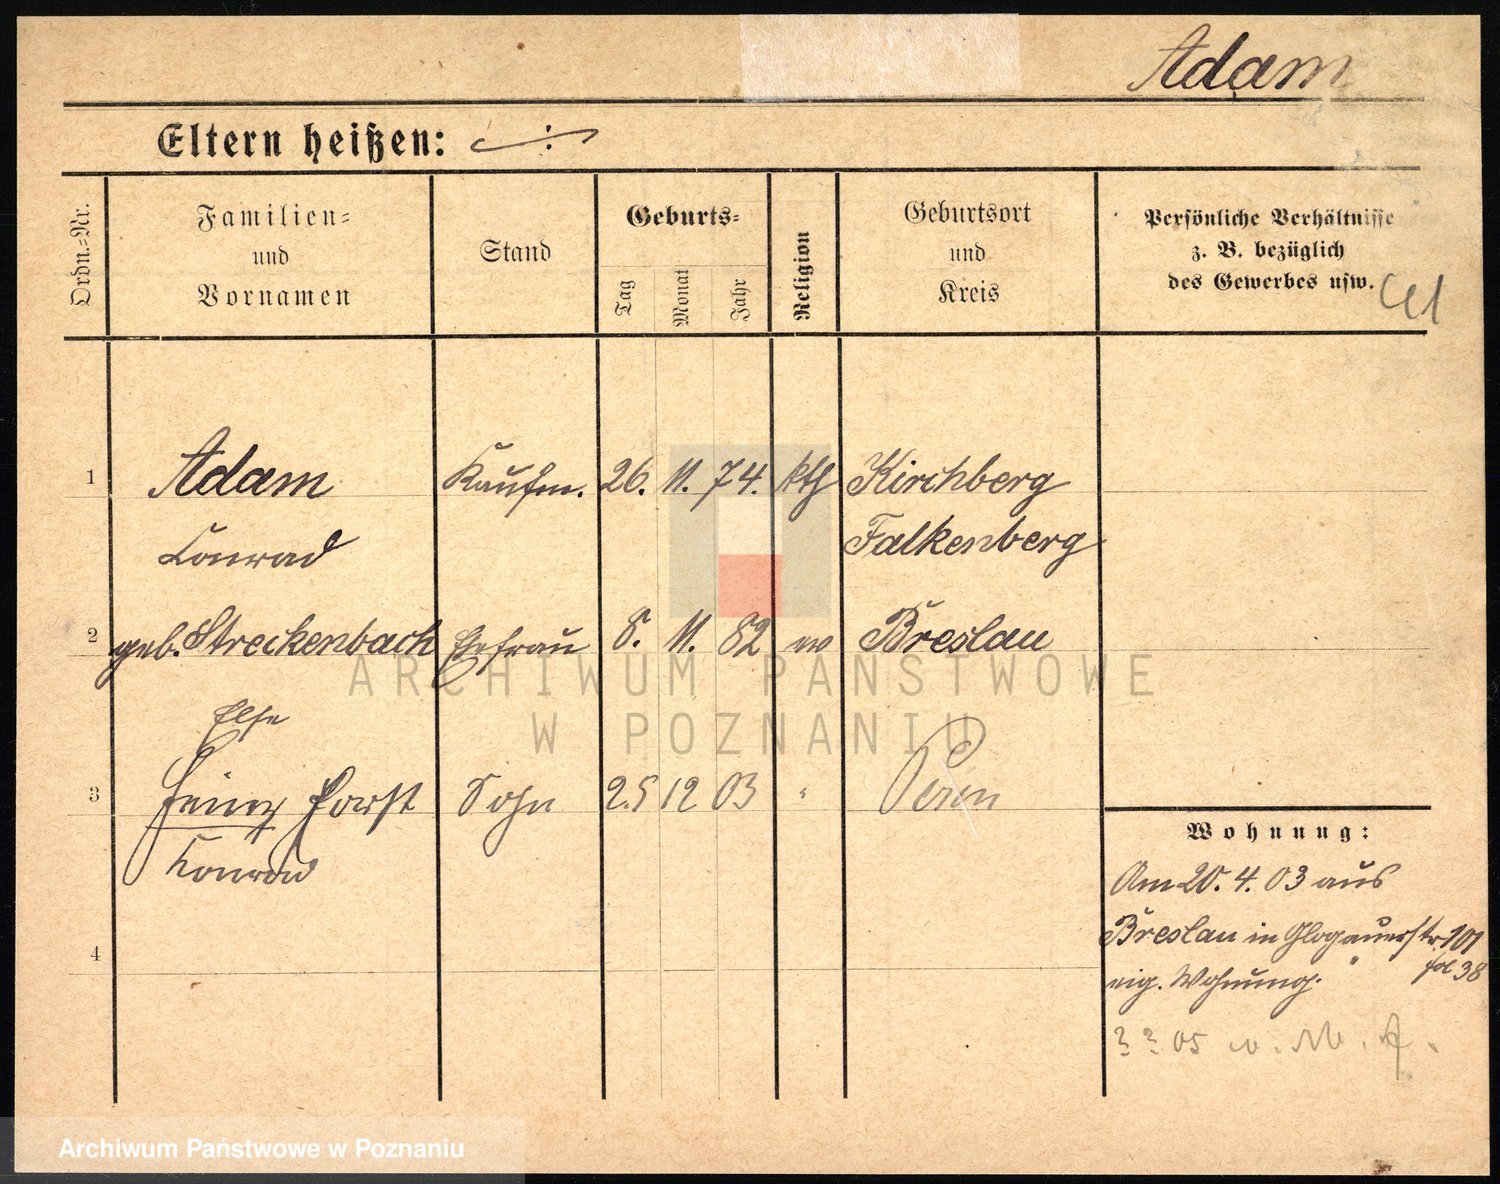 Adam
Eltern heißen:
Ordn.=Nr.
Familien=
und
Vornamen
Stand
Geburts=
Tag
Monat
Jahr
Religion
Geburtsort
und
Kreis
Persönliche Verhältnisse
z. B. bezüglich
des Gewerbes usw.
1 Adam Kaufm. 26. 11. 74. kth Kirchberg
Conrad Falkenberg
2 geb. Streckenbach Ehefrau 8. 11. 82 ev Breslau
Else
3 Heinz Horst Sohn 25 12 03 " Posen
Konrad
4
Wohnung:
Am 20. 4. 03 aus
Breslau in Glogauerstr. 101
eig. Wohnung. fol 38
? ? 05
ARCHIWUM PAŃSTWOWE
W POZNANIU
Archiwum Państwowe w Poznaniu